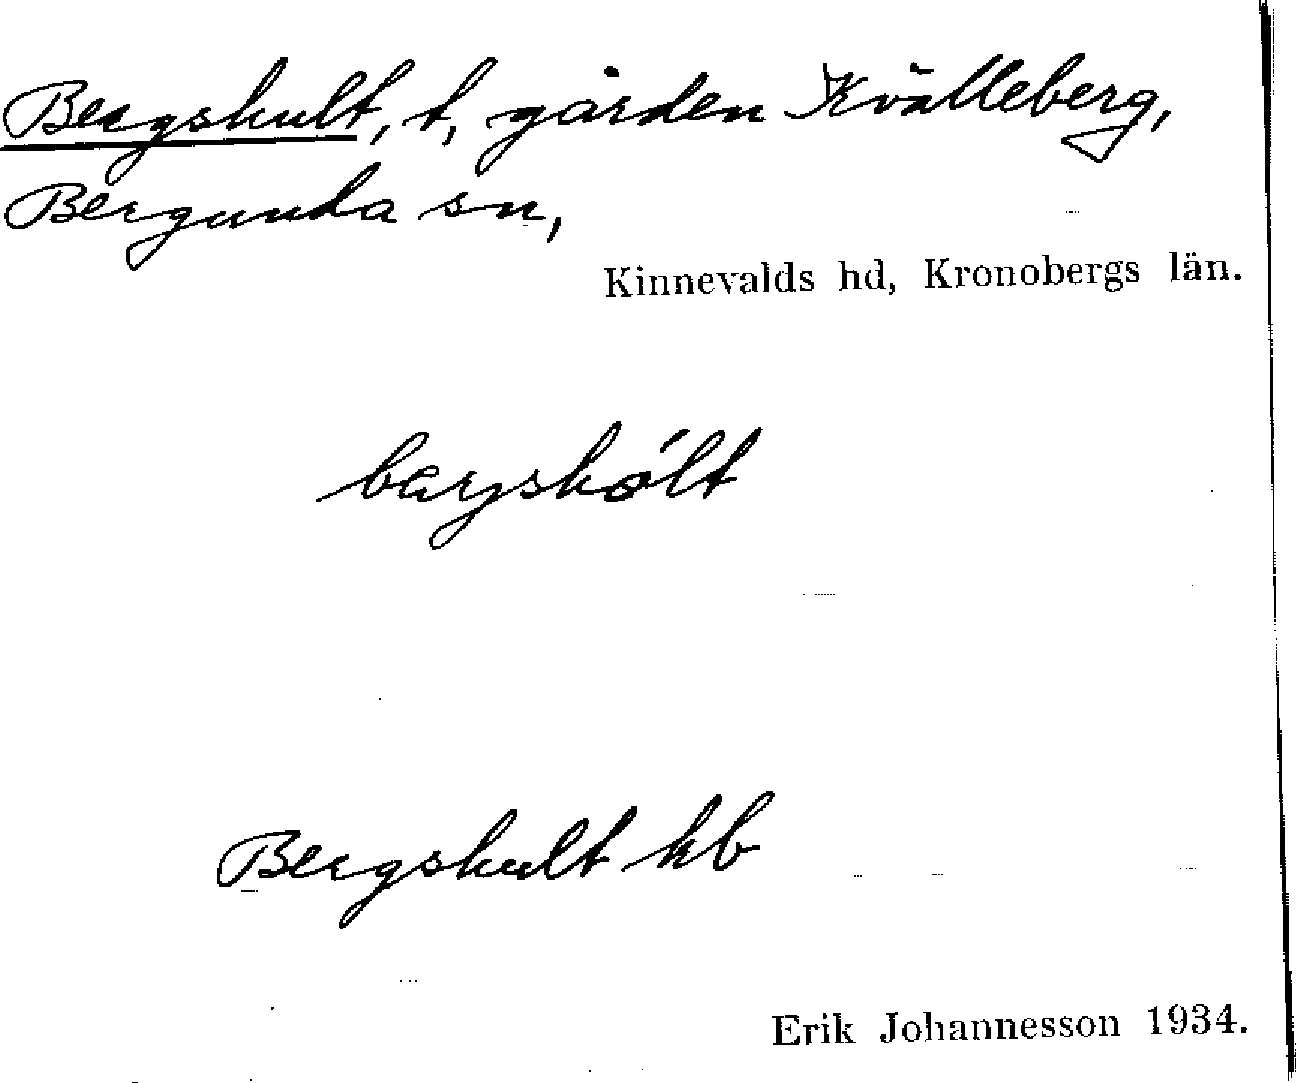 Bergskult, t, gården Kvälleberg,
Bergunda sn,
Kinnevalds hd, Kronobergs län.
Bergskult kb
Erik Johannesson 1934.